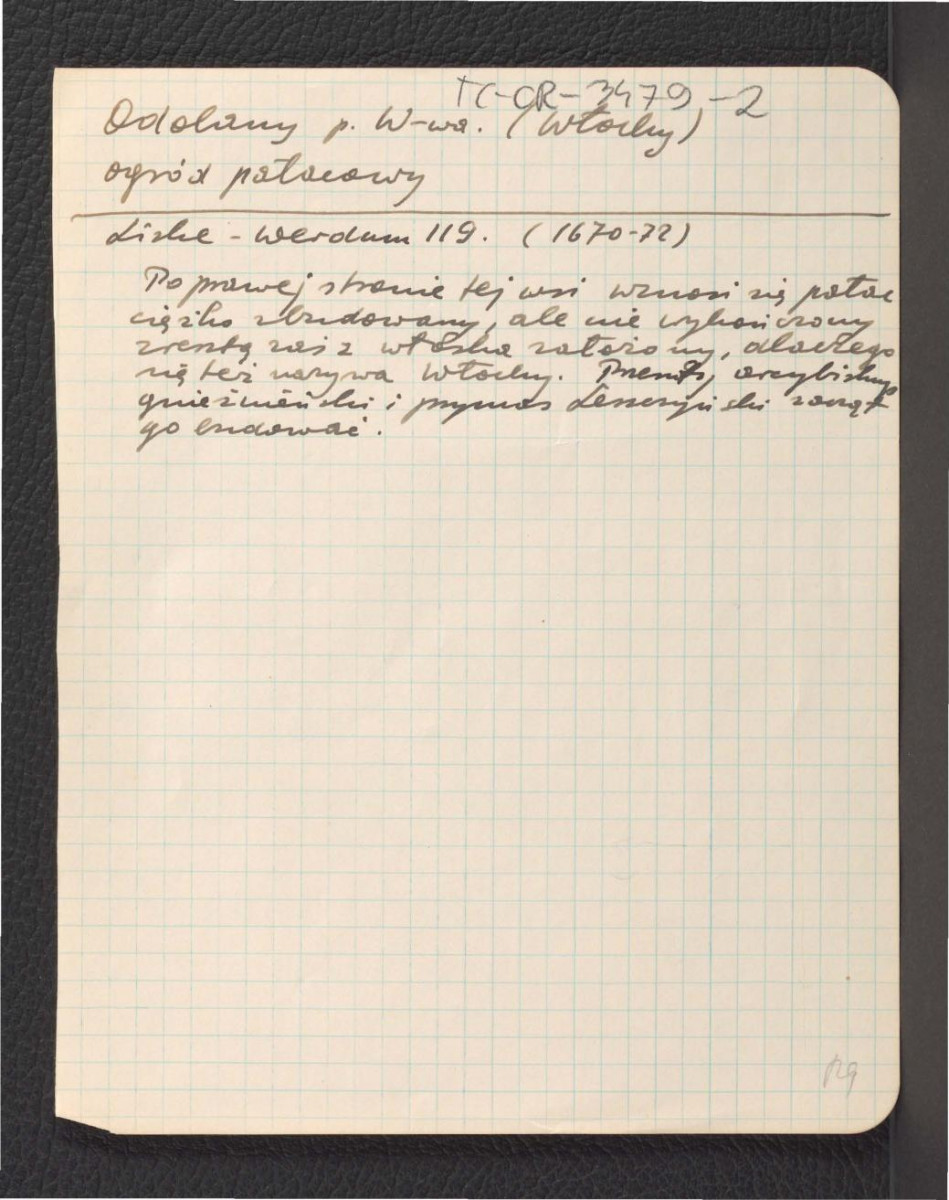 TC-CR-3479-2
Odolany p. W-wa. (Włochy)
ogród pałacowy
Liske - Werdum 119. (1670-72)
Po prawej stronie tej wsi wznosi się pałac
ciężko zbudowany, ale nie wykończony
zresztą zaś z włoska założony, dlaczego
się też nazywa Włochy. arcybiskup
gnieźnieński i prymas Leszczyński zaczął
go budować.